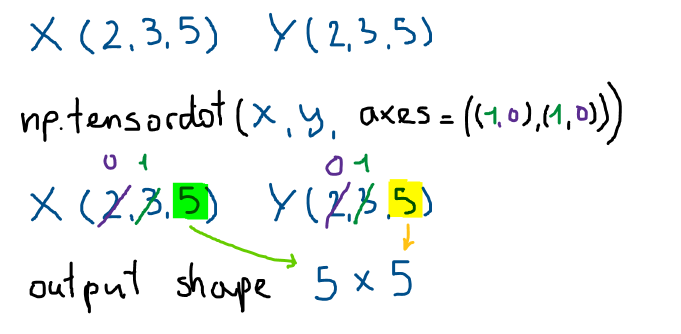 X (2,3,5) Y(2,3,5)
np.tensordot(x, y, axes = ((1,0),(1,0)))
0 1 0 1
X (2,3,5) Y(2,3,5)
output shape 5 x 5